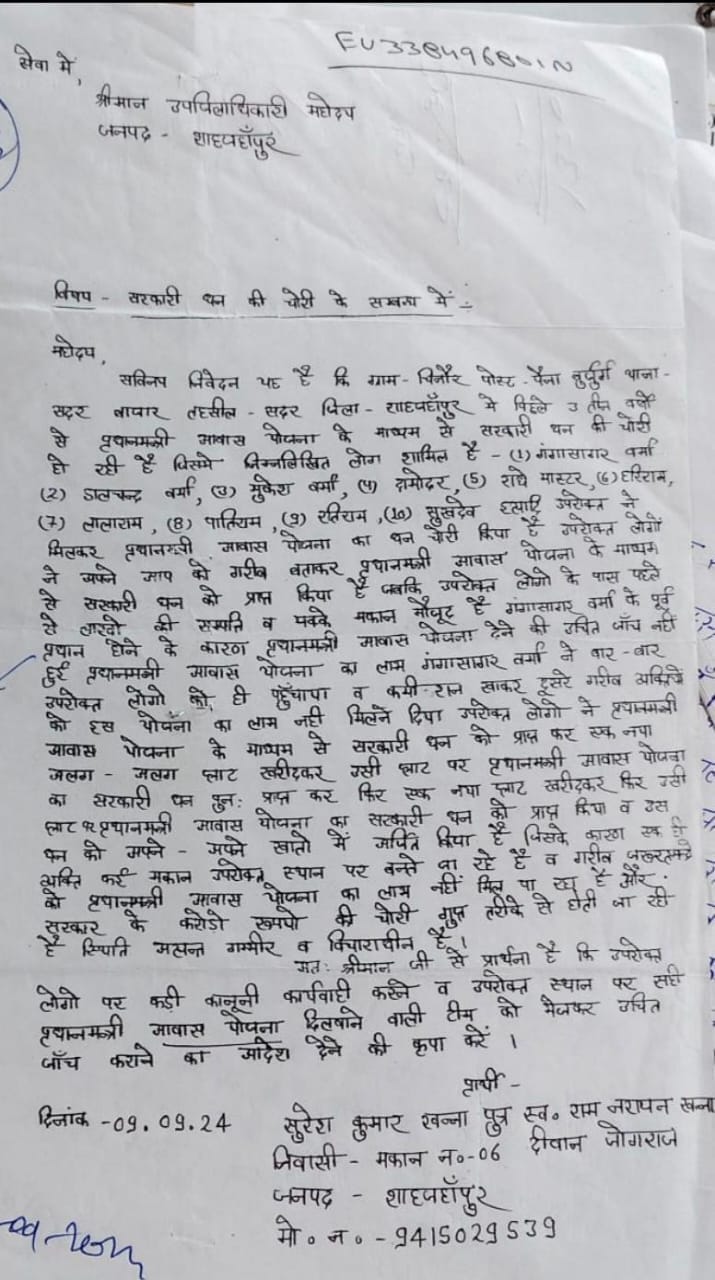 EU338496801IN
सेवा में,
श्रीमान उपजिलाधिकारी महोदय
जनपद - शाहजहाँपुर
विषय - सरकारी धन की चोरी के सम्बन्ध में :-
महोदय,
सविनय निवेदन यह है कि ग्राम - चिनौर पोस्ट - पैना बुर्जुग थाना -
सदर बाजार तहसील - सदर जिला - शाहजहाँपुर मे पिछले 3 तीन वर्षो
से प्रधानमन्त्री आवास योजना के माध्यम से सरकारी धन की चोरी
हो रही है जिसमे निम्नलिखित लोग शामिल है - (1) गंगासागर वर्मा
(2) डालचन्द्र वर्मा, (3) मुकेश वर्मा, (4) दामोदर, (5) राधे मास्टर, (6) हरिराम,
(7) लालाराम, (8) पातिराम, (9) रतिराम, (10) सुखदेव इत्यादि उपरोक्त ने
मिलकर प्रधानमन्त्री आवास योजना का धन चोरी किया है उपरोक्त लोगों
ने अपने आप को गरीब बताकर प्रधानमन्त्री आवास योजना के माध्यम
से सरकारी धन को प्राप्त किया है जबकि उपरोक्त लोगो के पास पहले
से लाखो की सम्पति व पक्के मकान मौजूद है गंगासागर वर्मा के पूर्व
प्रधान होने के कारण प्रधानमन्त्री आवास योजना देने की उचित जाँच नहीं
हुई प्रधानमन्त्री आवास योजना का लाभ गंगासागर वर्मा ने बार - बार
उपरोक्त लोगो को ही पहुँचाया व कमीशन खाकर दूसरे गरीब व्यक्तियों
को इस योजना का लाभ नही मिलने दिया उपरोक्त लोगो ने प्रधानमन्त्री
आवास योजना के माध्यम से सरकारी धन को प्राप्त कर एक नया
अलग - अलग प्लाट खरीदकर उसी प्लाट पर प्रधानमन्त्री आवास योजना
का सरकारी धन पुन: प्राप्त कर फिर एक नया प्लाट खरीदकर फिर उसी
प्लाट पर प्रधानमन्त्री आवास योजना का सरकारी धन को प्राप्त किया व उस
धन को अपने - अपने खातो में अर्चित किया है जिसके कारण एक ही
व्यक्ति कई मकान उपरोक्त स्थान पर बनते जा रहे है व गरीब जरूरतमंद
को प्रधानमन्त्री आवास योजना का लाभ नहीं मिल पा रहा है और
सरकार के करोडो रूपयो की चोरी गुप्त तरीके से होती जा रही
है स्थिति अत्यन्त गम्भीर व विचाराधीन है।
अत: श्रीमान जी से प्रार्थना है कि उपरोक्त
लोगो पर कड़ी कानूनी कार्यवाही करने व उपरोक्त स्थान पर सही
प्रधानमन्त्री आवास योजना दिलवाने वाली टीम को भेजकर उचित
जाँच कराने का आदेश देने की कृपा करें ।
प्रार्थी -
दिनांक - 09.09.24 सुरेश कुमार खन्ना पुत्र स्व० राम नरायन खन्ना
निवासी - मकान न०-06 दीवान जोगराज
जनपद - शाहजहाँपुर
मो० न० - 9415029539